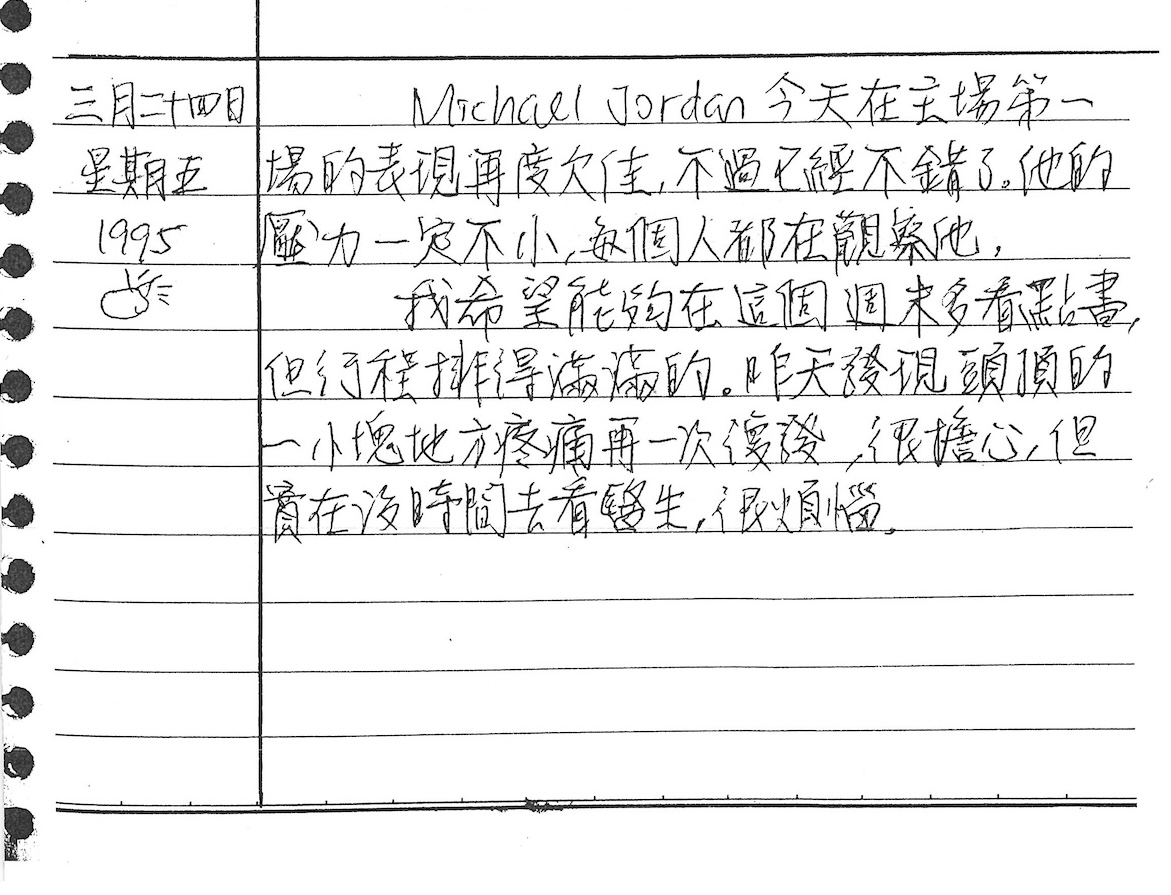 三月二十四日
星期五
1995
Michael Jordan 今天在主場第一
場的表現再度欠佳,不過已經不錯了。他的
壓力一定不小,每個人都在觀察他,
我希望能夠在這個週末多看點書,
但行程排得滿滿的。昨天發現頭頂的
一小塊地方疼痛再一次復發,很擔心,但
實在沒時間去看醫生,很煩惱。